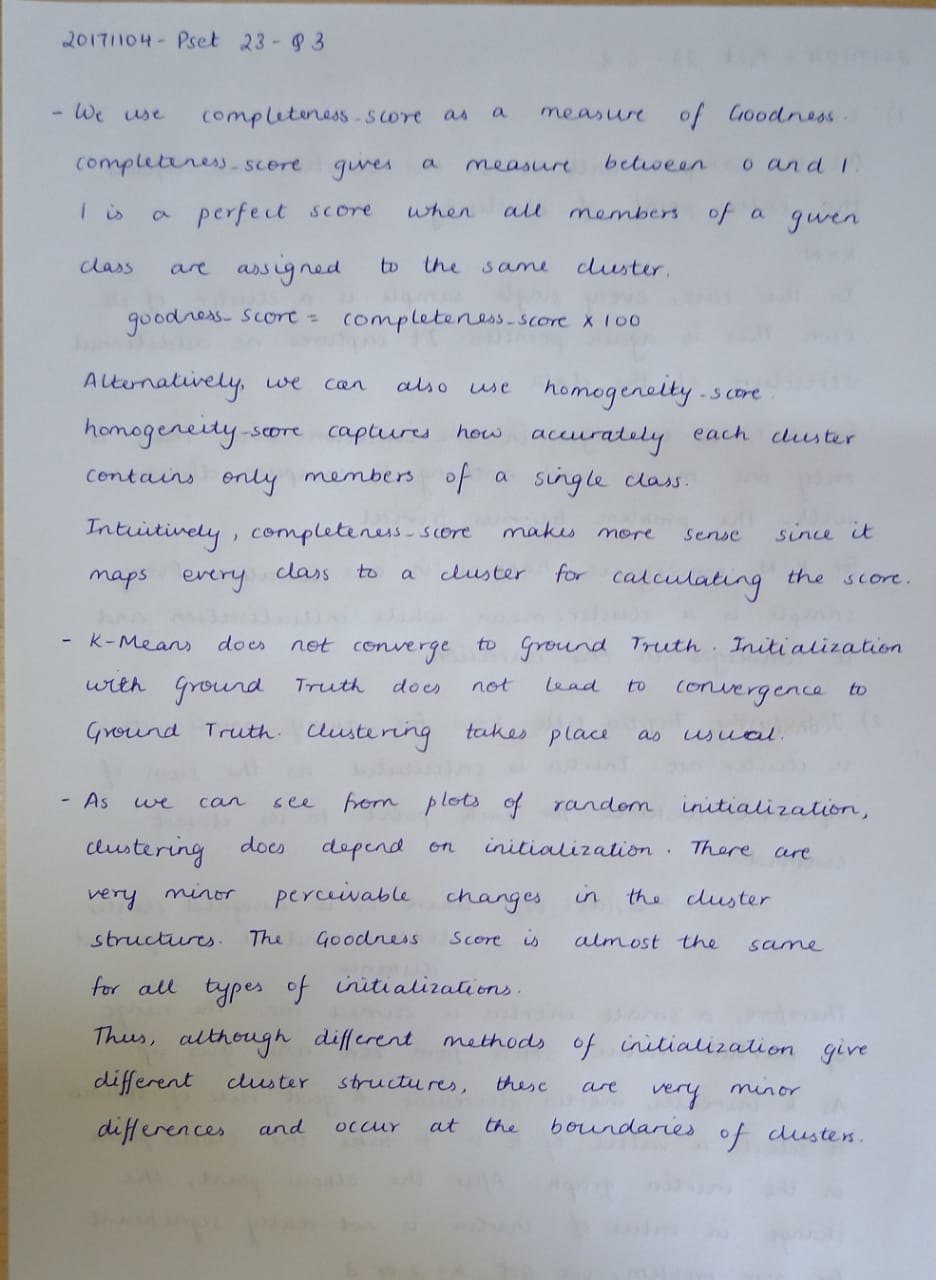 20171104 - Pset 23 - Q 3
- We use completeness_score as a measure of Goodness.
completeness_score gives a measure between 0 and 1.
1 is a perfect score when all members of a given
class are assigned to the same cluster.
goodness_score = completeness_score x 100
Alternatively, we can also use homogeneity_score.
homogeneity_score captures how accurately each cluster
contains only members of a single class.
Intuitively, completeness_score makes more sense since it
maps every class to a cluster for calculating the score.
- K-Means does not converge to Ground Truth. Initialization
with Ground Truth does not lead to convergence to
Ground Truth. Clustering takes place as usual.
- As we can see from plots of random initialization,
clustering does depend on initialization. There are
very minor perceivable changes in the cluster
structures. The Goodness Score is almost the same
for all types of initializations.
Thus, although different methods of initialization give
different cluster structures, these are very minor
differences and occur at the boundaries of clusters.